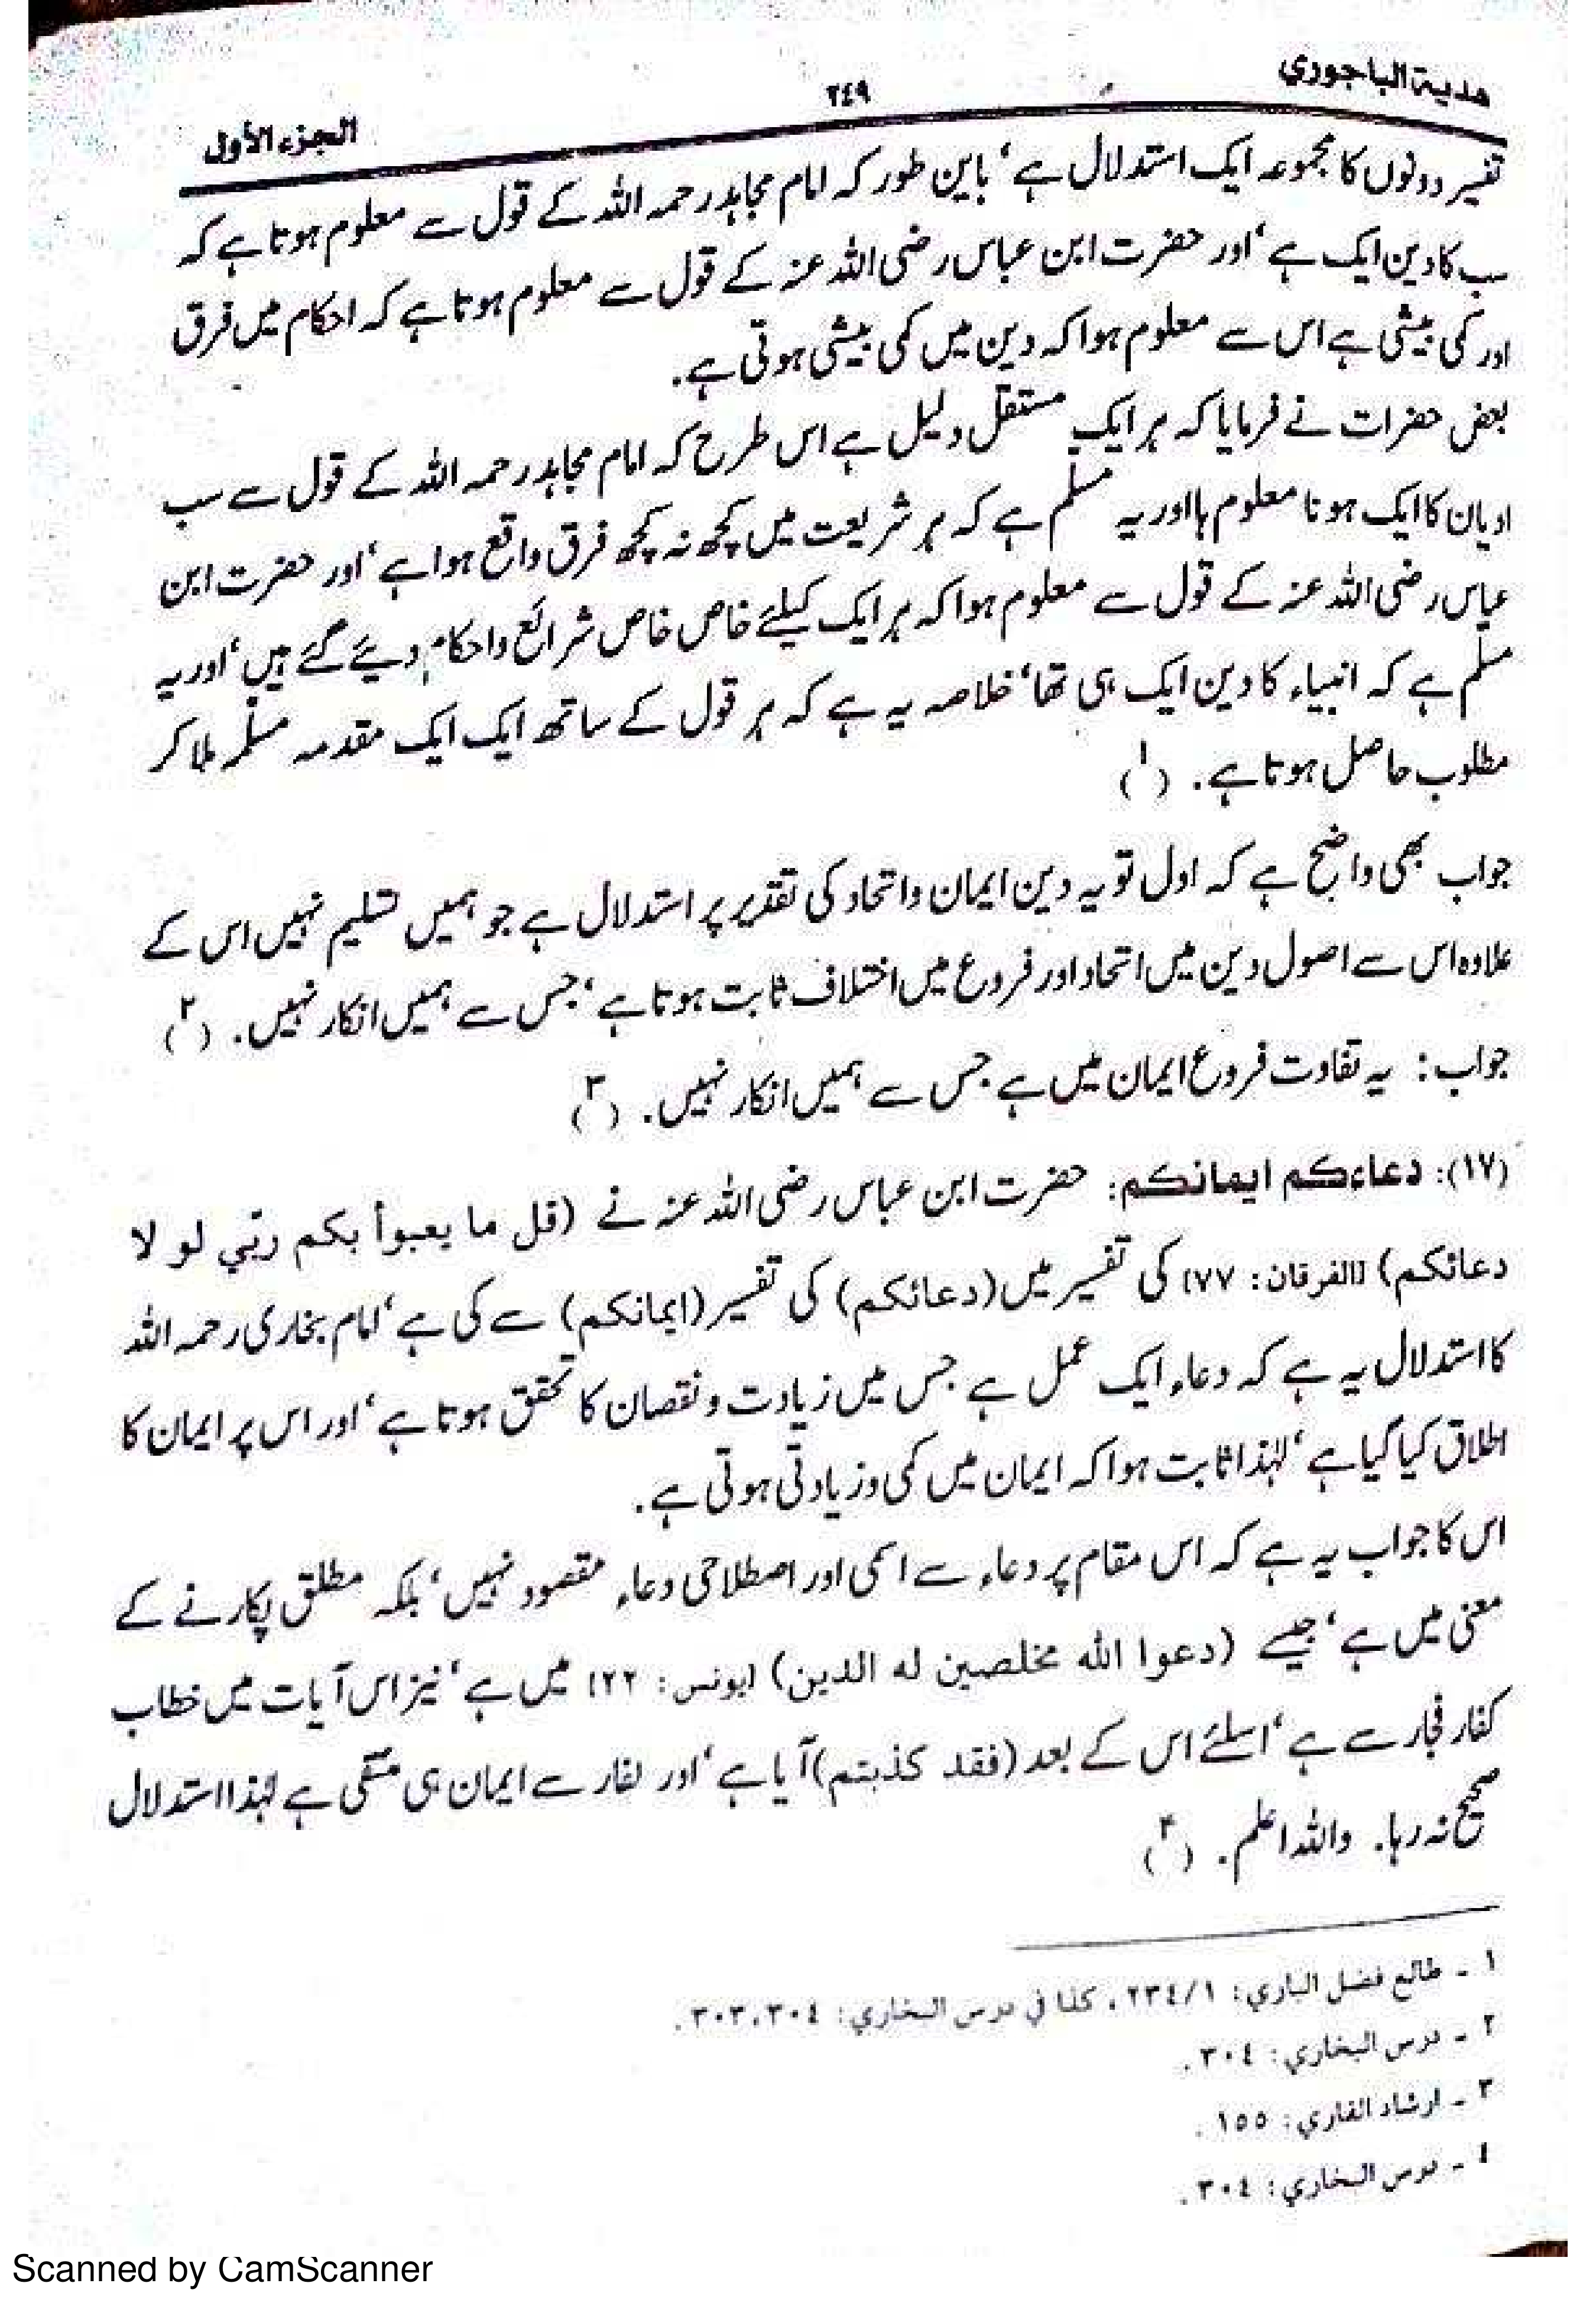 هدية الباجوري
٢٤٩
الجزء الأول
تفسیر دونوں کا مجموعہ ایک استدلال ہے، باین طور کہ امام مجاہد رحمہ اللہ کے قول سے معلوم ہوتا ہے کہ
سب کا دین ایک ہے، اور حضرت ابن عباس رضی اللہ عنہ کے قول سے معلوم ہوتا ہے کہ احکام میں فرق
اور کمی بیشی ہے اس سے معلوم ہوا کہ دین میں کمی بیشی ہوتی ہے.
بعض حضرات نے فرمایا کہ ہر ایک مستقل دلیل ہے اس طرح کہ امام مجاہد رحمہ اللہ کے قول سے سب
ادیان کا ایک ہونا معلوم ہا اور یہ مسلم ہے کہ ہر شریعت میں کچھ نہ کچھ فرق واقع ہوا ہے، اور حضرت ابن
عباس رضی اللہ عنہ کے قول سے معلوم ہوا کہ ہر ایک کیلئے خاص خاص شرائع واحکام دیئے گئے ہیں، اور یہ
مسلم ہے کہ انبیاء کا دین ایک ہی تھا، خلاصہ یہ ہے کہ ہر قول کے ساتھ ایک ایک مقدمہ مسلمہ ملا کر
مطلوب حاصل ہوتا ہے. (١)
جواب بھی واضح ہے کہ اول تو یہ دین ایمان واتحاد کی تقدیر پر استدلال ہے جو ہمیں تسلیم نہیں اس کے
علاوہ اس سے اصول دین میں اتحاد اور فروع میں اختلاف ثابت ہوتا ہے، جس سے ہمیں انکار نہیں. (٢)
جواب: یہ تفاوت فروع ایمان میں ہے جس سے ہمیں انکار نہیں. (٣)
(١٧): دعاءكم ايمانكم: حضرت ابن عباس رضی اللہ عنہ نے (قل ما يعبوأ بكم ربي لو لا
دعائكم) [الفرقان: ٧٧] کی تفسیر میں (دعائكم) کی تفسیر (ايمانكم) سے کی ہے، امام بخاری رحمہ اللہ
کا استدلال یہ ہے کہ دعاء ایک عمل ہے جس میں زیادت ونقصان کا تحقق ہوتا ہے، اور اس پر ایمان کا
اطلاق کیا گیا ہے، لہٰذا ثابت ہوا کہ ایمان میں کمی وزیادتی ہوتی ہے.
اس کا جواب یہ ہے کہ اس مقام پر دعاء سے اسمی اور اصطلاحی دعاء مقصود نہیں، بلکہ مطلق پکارنے کے
معنی میں ہے، جیسے (دعوا الله مخلصين له الدين) [يونس: ٢٢] میں ہے، نیز اس آیات میں خطاب
کفار فجار سے ہے، اسلئے اس کے بعد (فقد كذبتم) آیا ہے، اور لفار سے ایمان ہی منتفی ہے لہٰذا استدلال
صحیح نہ رہا. واللہ اعلم. (۴)
١ - طالع فضل الباري: ٢٣٤/١، كذا في درس البخاري: ٣٠٣،٣٠٤.
٢ - درس البخاري: ٣٠٤.
٣ - ارشاد القاري: ١٥٥.
٤ - درس البخاري: ٣٠٤.
Scanned by CamScanner